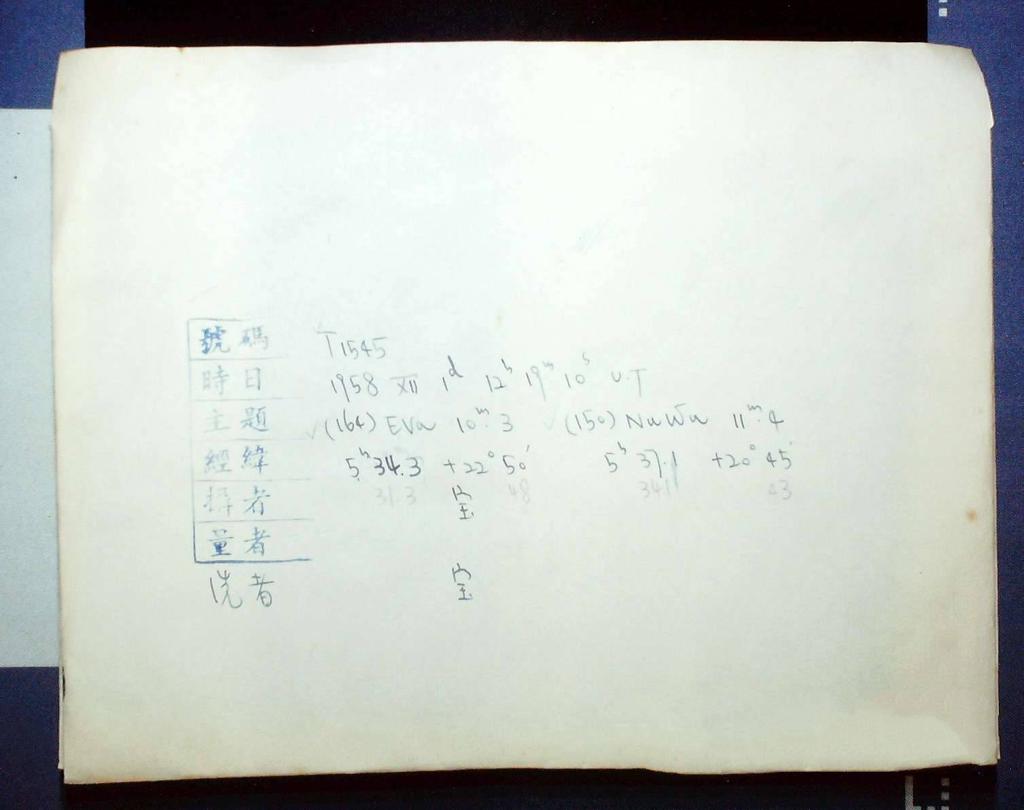 號碼 T1545
時日 1958 XII 1ᵈ 12ʰ 19ᵐ 10ˢ U.T
主題 √(164) Eva 10ᵐ.3 √(150) NuWa 11ᵐ.4
經緯 5ʰ 34.3 +22° 50′ 5ʰ 37.1 +20° 45′
31.3 48 341 43
者 宝
量者
洗者 宝